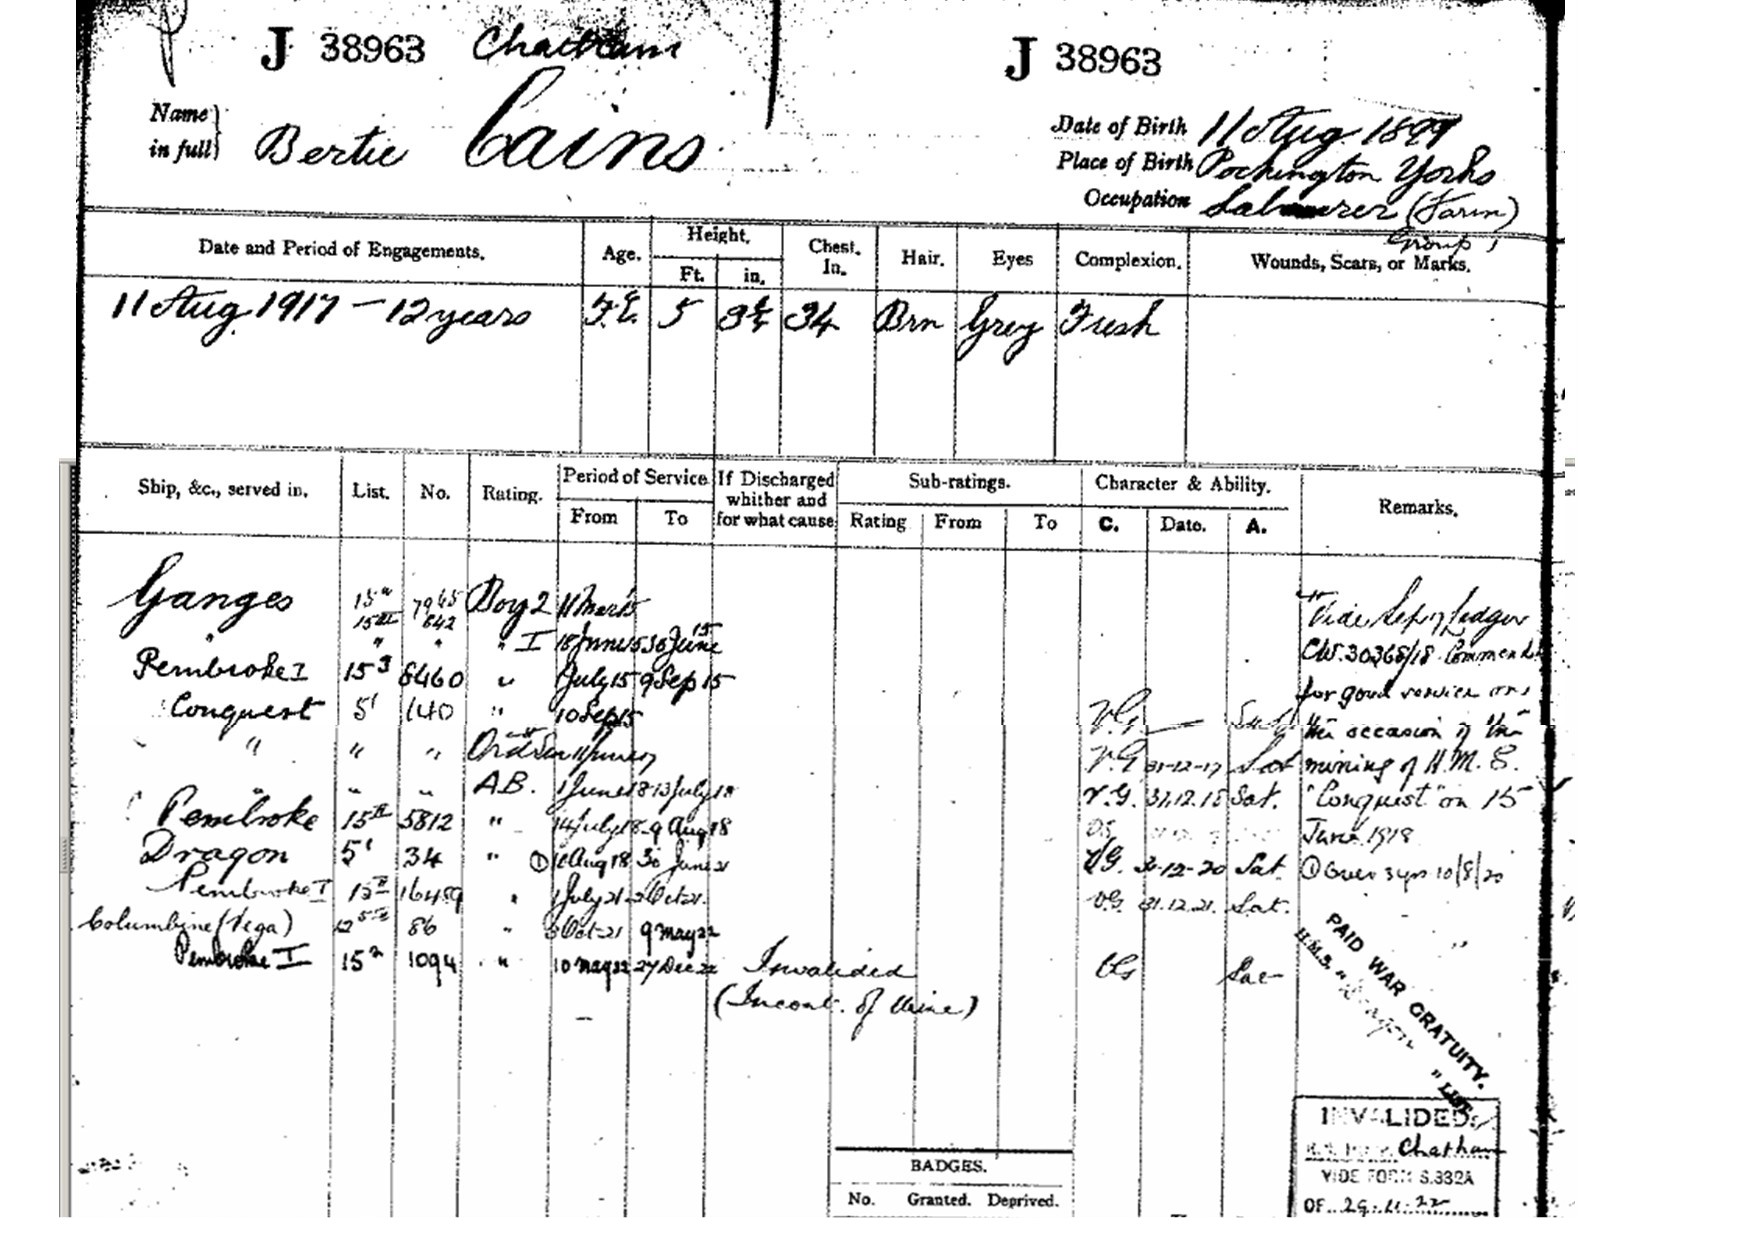 J 38963 Chatham J 38963
Name in full Bertie Cains
Date of Birth 11 Aug. 1899
Place of Birth Pocklington Yorks
Occupation Labourer (Farm)
Group 1
Date and Period of Engagements. Age. Height. Ft. in. Chest. In. Hair. Eyes Complexion. Wounds, Scars, or Marks.
11 Aug. 1917 — 12 years 5 34 Brn Grey Fresh
Ship, &c., served in. List. No. Rating. Period of Service From To If Discharged whither and for what cause Sub-ratings. Rating From To Character & Ability. C. Date. A. Remarks.
Ganges Boy 2 Vide Ledger
15III 842
" " " " I 18 June 15 30 June 15 CW. 30368/18 Commended
Pembroke I 15 3 8460 " 1 July 15 9 Sep 15 for good service on
Conquest 5' 140 " 10 Sep 15 V.G. — the occasion of the
" " " Ord Sea V.G. 31-12-17 Sat mining of H.M.S.
" " " A.B. 1 June 18 13 July 18 V.G. 31.12.18 Sat. "Conquest" on 15
Pembroke 15II 5812 " 14 July 18 9 Aug 18 June 1918
Dragon 5' 34 " ① 10 Aug 18 30 June 21 VG. 31-12-20 Sat. ① Over 3 yrs 10/8/20
Pembroke I 15II 16489 " 1 July 21 2 Oct 21. VG 31.12.21. Sat.
Columbine (Vega) 86 " 3 Oct 21 9 May 22
Pembroke I 15 2 1094 " 10 May 22 27 Dec 22 Invalided VG Sat
(Incont. of Urine)
PAID WAR GRATUITY.
H.M.S. "Dragon" LIST
INVALIDED.
Chatham
VIDE FORM S.332A
OF 29.11.22
BADGES.
No. Granted. Deprived.